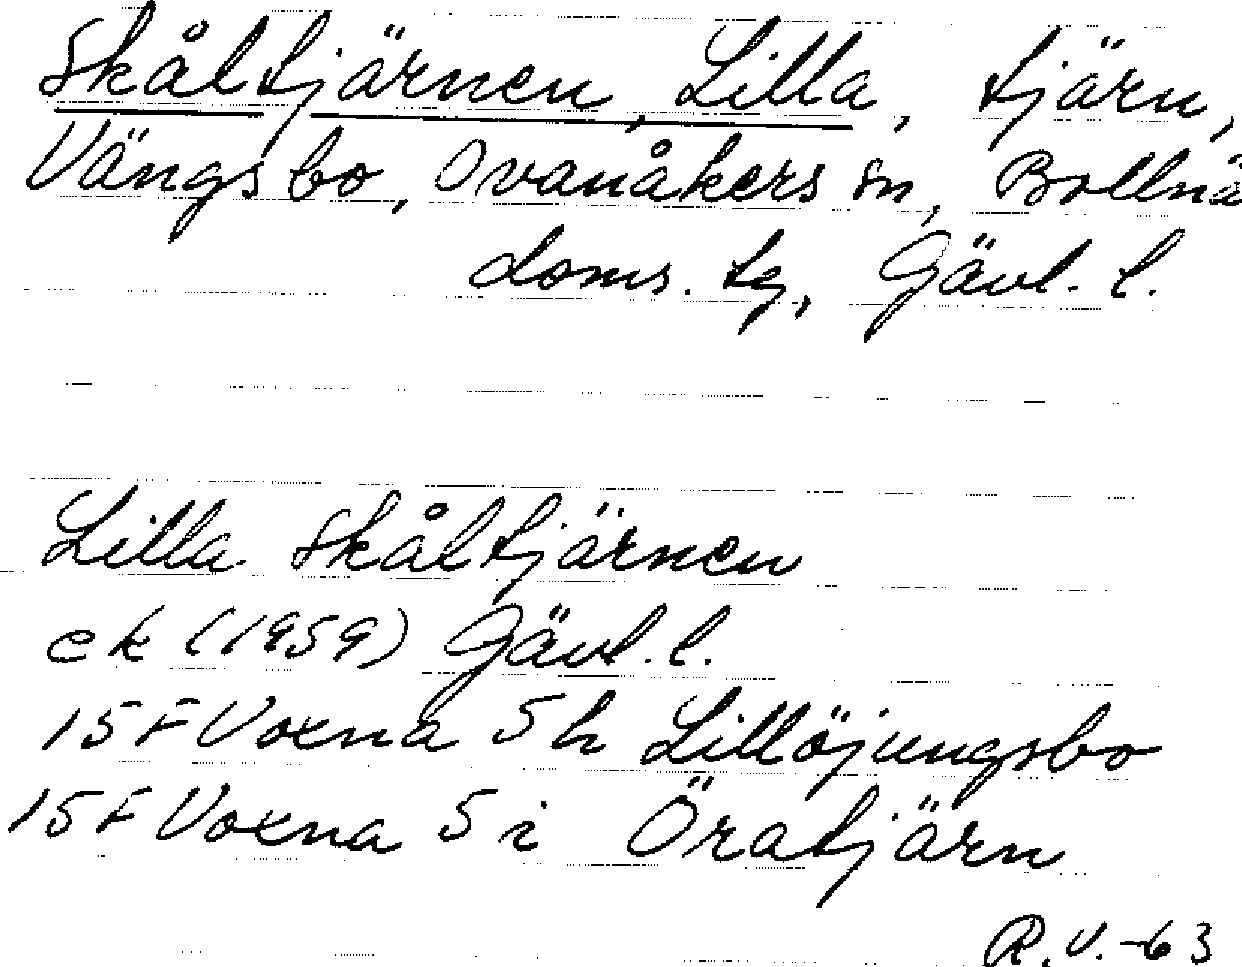 Skåltjärnen, Lilla, tjärn,
Vängsbo, Ovanåkers sn, Bollnä
doms. tg, Gävl. l.
Lilla Skåltjärnen
ek (1959) Gävl. l.
15 F Voxna 5 h Lillöjungsbo
15 F Voxna 5 i Öratjärn
R.V.-63